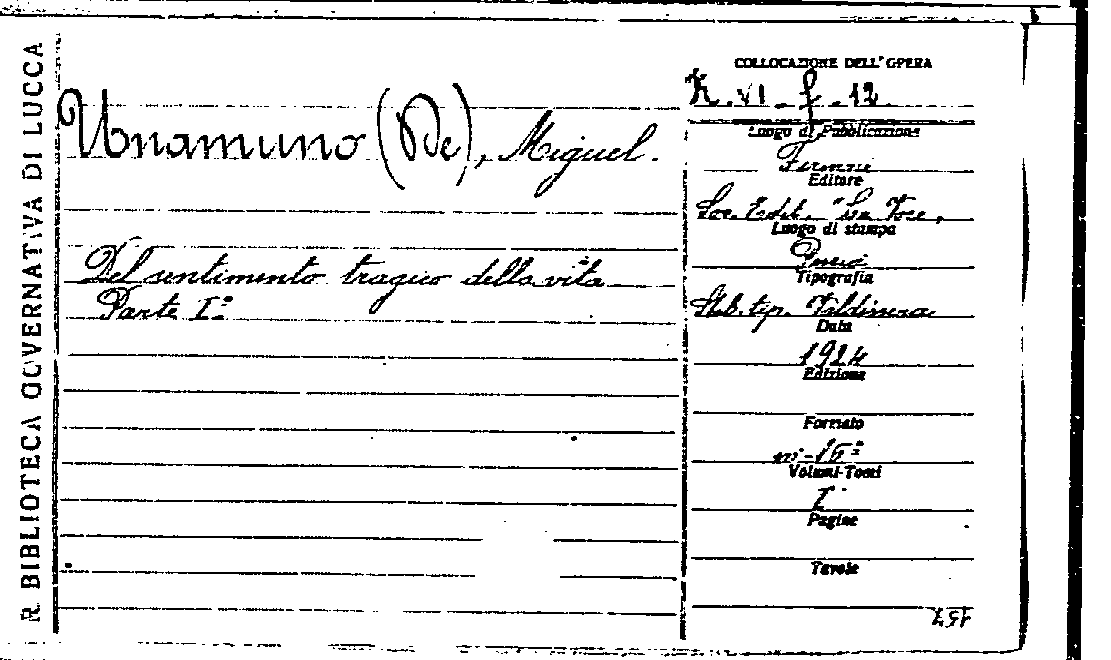 R. BIBLIOTECA GOVERNATIVA DI LUCCA
Unamuno (De), Miguel.
Del sentimento tragico della vita
Parte Iª
COLLOCAZIONE DELL'OPERA
K. VI - f. 12.
Luogo di Pubblicazione
Firenze
Editore
Soc. Edit. "La Voce"
Luogo di stampa
Tipografia
Stab. tip. Valdinera
Data
1924
Edizione
Formato
in-16°
Volumi-Tomi
I
Pagine
Tavole
157